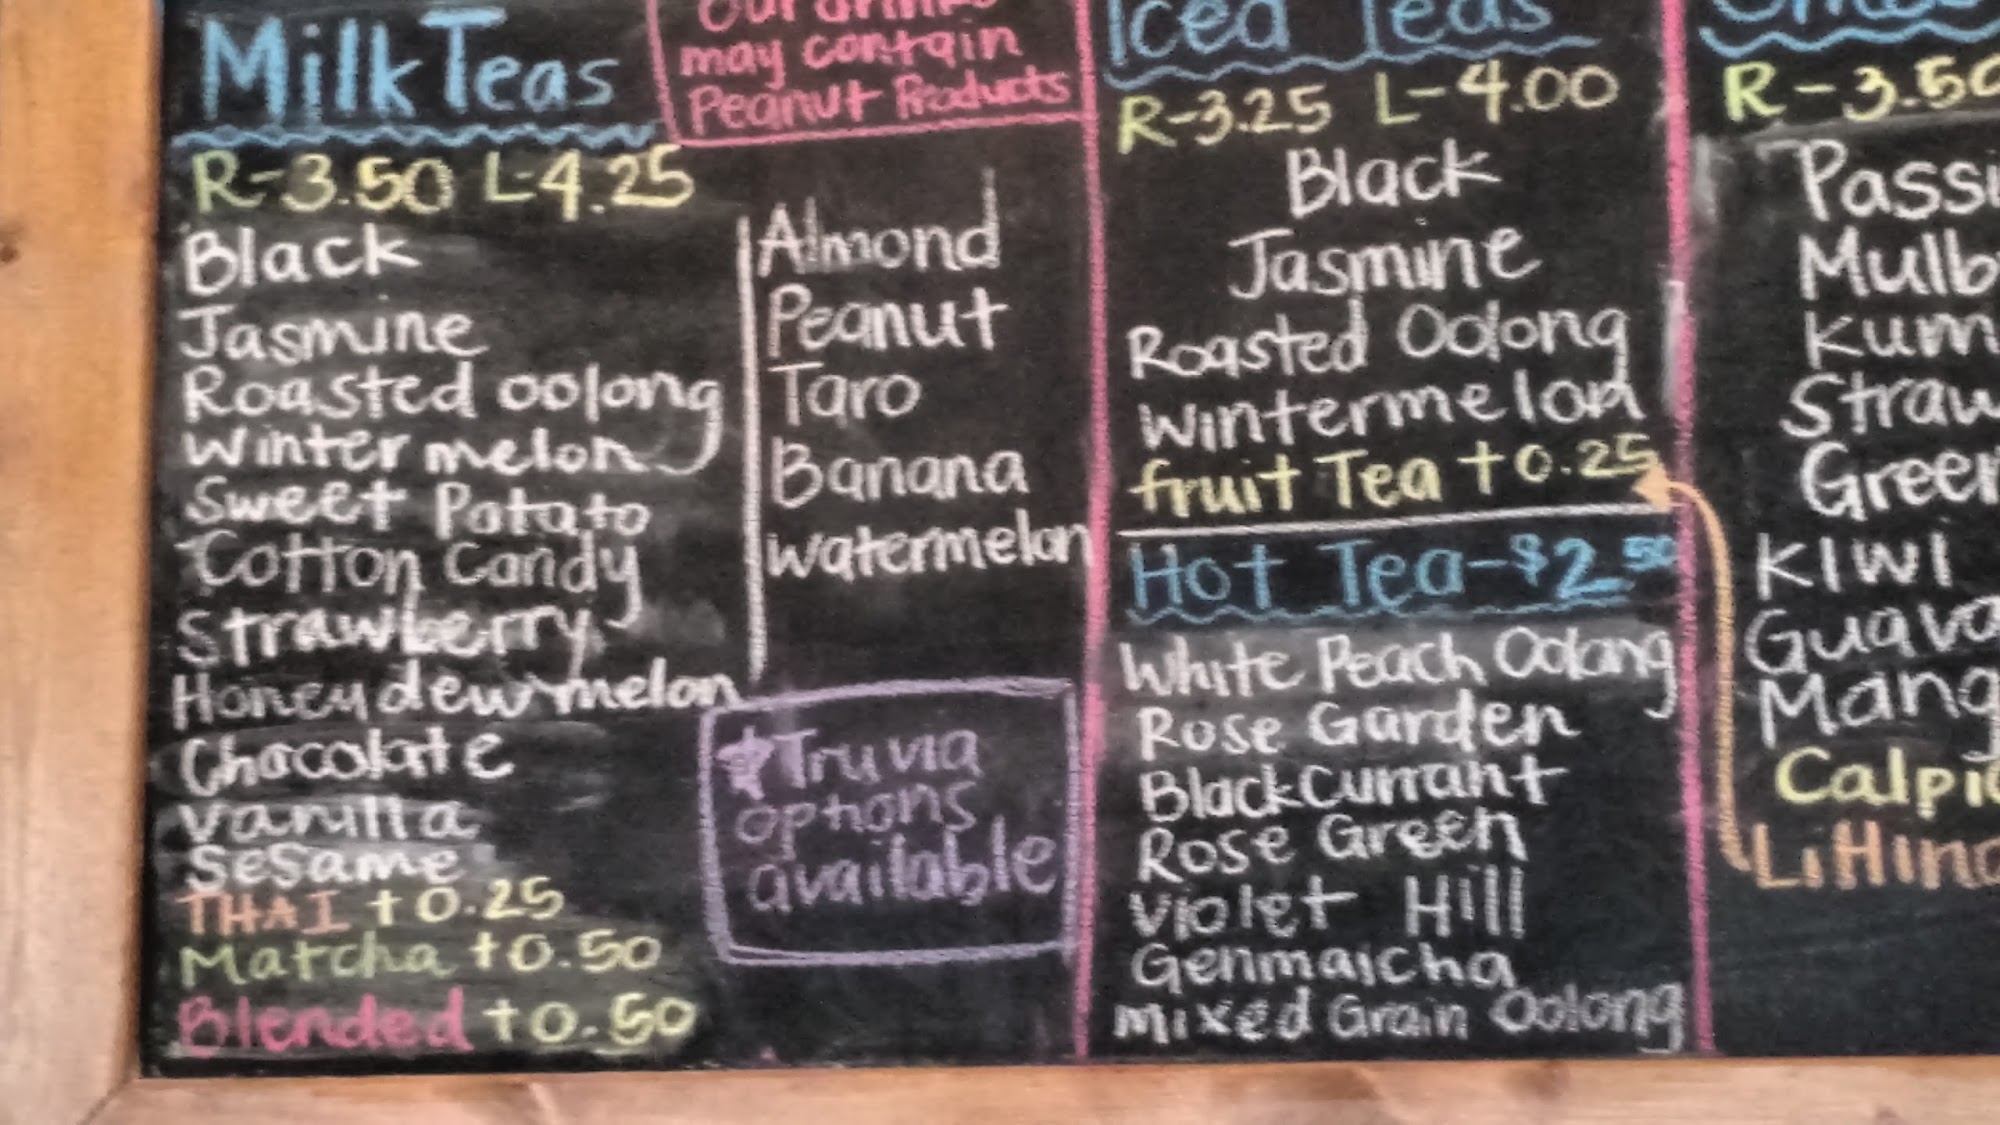 Milk Teas
R-3.50 L-4.25
Black
Jasmine
Roasted oolong
Winter melon
Sweet Potato
Cotton Candy
Strawberry
Honeydew melon
Chocolate
Vanilla
Sesame
THAI +0.25
Matcha +0.50
Blended +0.50
Our drinks
may contain
Peanut Products
Almond
Peanut
Taro
Banana
watermelon
Truvia
options
available
Iced Teas
R-3.25 L-4.00
Black
Jasmine
Roasted Oolong
wintermelon
fruit Tea +0.25
Hot Tea-$2.50
White Peach Oolong
Rose Garden
Black Currant
Rose Green
Violet Hill
Genmaicha
Mixed Grain Oolong
R-3.50
Passi
Mulb
Kum
Straw
Green
Kiwi
Guava
Mang
Calpi
LiHing